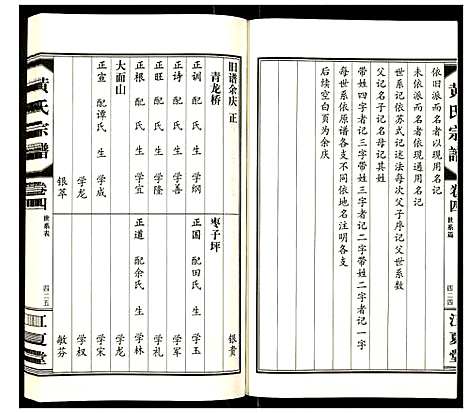 黄氏宗谱
卷四
世系篇
四二四
江夏堂
依旧派而名者以现用名记
依派而未名者依现通用名记
世系记依苏式记述法每次父子序记父世系
父记名子记名母记其姓
带姓四字者记三字带姓三字者记二字带姓二字者记一字
每世系依原谱各支不同依地名注明各支
后续空白页为自记页
旧谱余庆 正
青龙桥
正训 配 氏 生 学纲
正诗 配 氏 生 学善
正旺 配 氏 生 学隆
正根 配 氏 生 学宣
大面山
正宣 配谭氏 生 学成
学龙
银萃
银贵
枣子坪
正国 配田氏 生 学玉
学军
学礼
正道 配余氏 生 学林
学龙
学宋
学权
敏芬
黄氏宗谱
卷四
世系表
四二五
江夏堂